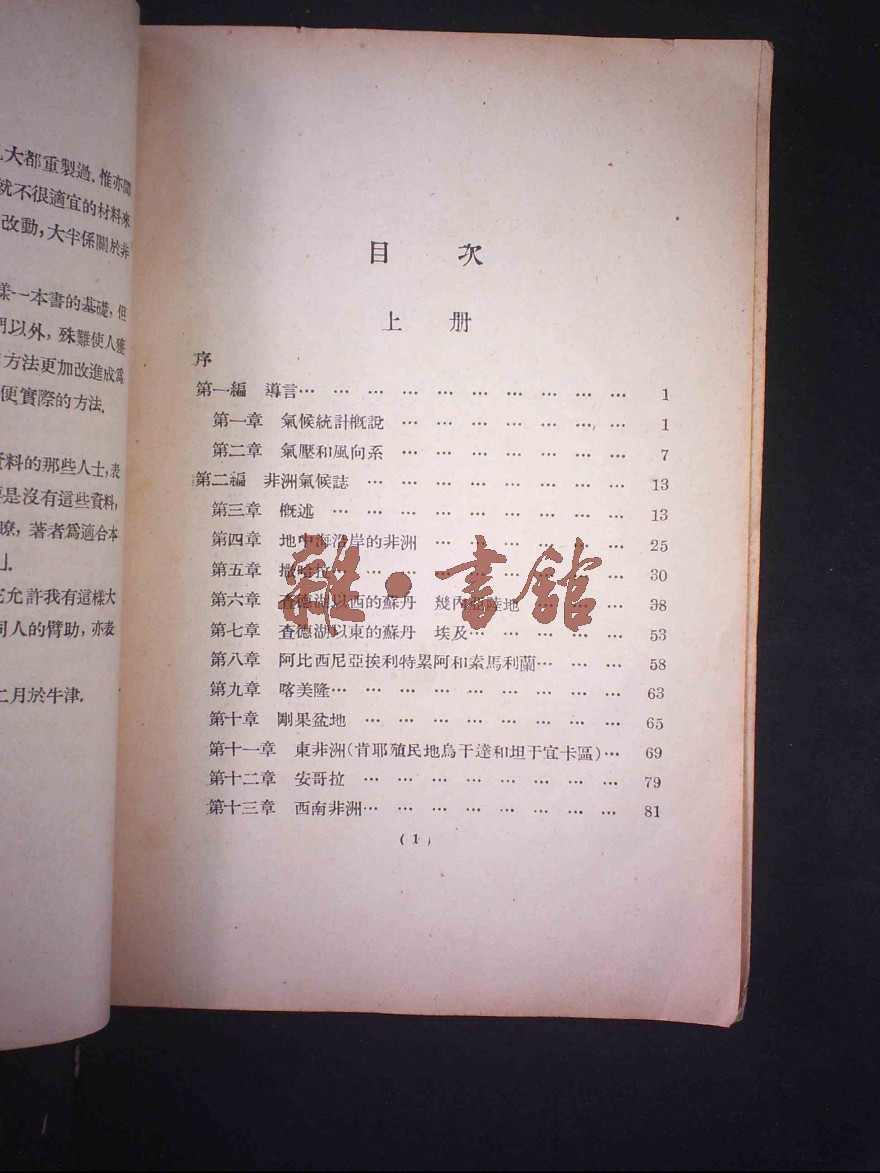 大都重製過．惟亦間
就不很適宜的材料來
改動，大半係關於非
樣一本書的基礎，但
以外，殊難使人獲
方法更加改進成爲
便實際的方法．
資料的那些人士，表
是沒有這些資料，
瞭，著者爲適合本
允許我有這樣大
同人的臂助，亦表
二月於牛津．
目 次
上 册
序
第一編 導言… … … … … … … … … … 1
第一章 氣候統計概說 … … … … … … … 1
第二章 氣壓和風向系 … … … … … … … 7
第二編 非洲氣候誌 … … … … … … … … 13
第三章 概述 … … … … … … … … … 13
第四章 地中海沿岸的非洲 … … … … … … 25
第五章 撒哈拉… … … … … … … … … 30
第六章 查德湖以西的蘇丹 幾內亞陸地 … … … 38
第七章 查德湖以東的蘇丹 埃及… … … … … 53
第八章 阿比西尼亞挨利特累阿和索馬利蘭… … … 58
第九章 喀美隆… … … … … … … … … 63
第十章 剛果盆地 … … … … … … … … 65
第十一章 東非洲（肯耶殖民地烏干達和坦干宜卡區）… 69
第十二章 安哥拉 … … … … … … … … 79
第十三章 西南非洲… … … … … … … … 81
（1）
雜·書館